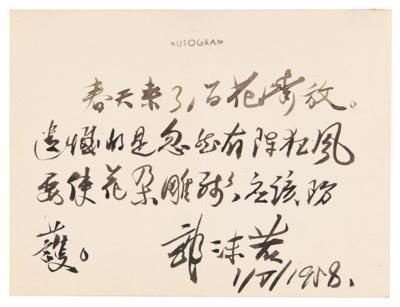 AUTOGRAM
春天来了,百花齐放。
遗憾的是忽然有阵狂风
要使花朵雕残,应该防
護。 郭沫若
1/V/1958.